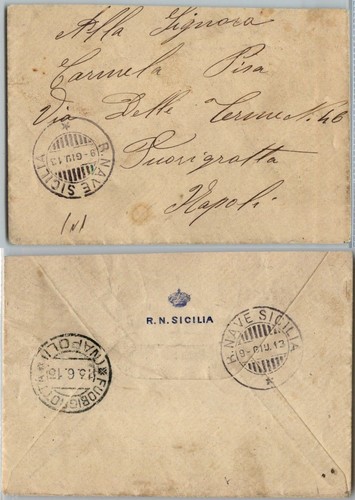 Alla Signora
Carmela Pisa
Via Delle Terme N. 46
Fuorigrotta
Napoli
R. NAVE SICILIA
9-GIU.13
R.N.SICILIA
R. NAVE SICILIA
9-GIU.13
FUORIGROTTA (NAPOLI)
13.6.13